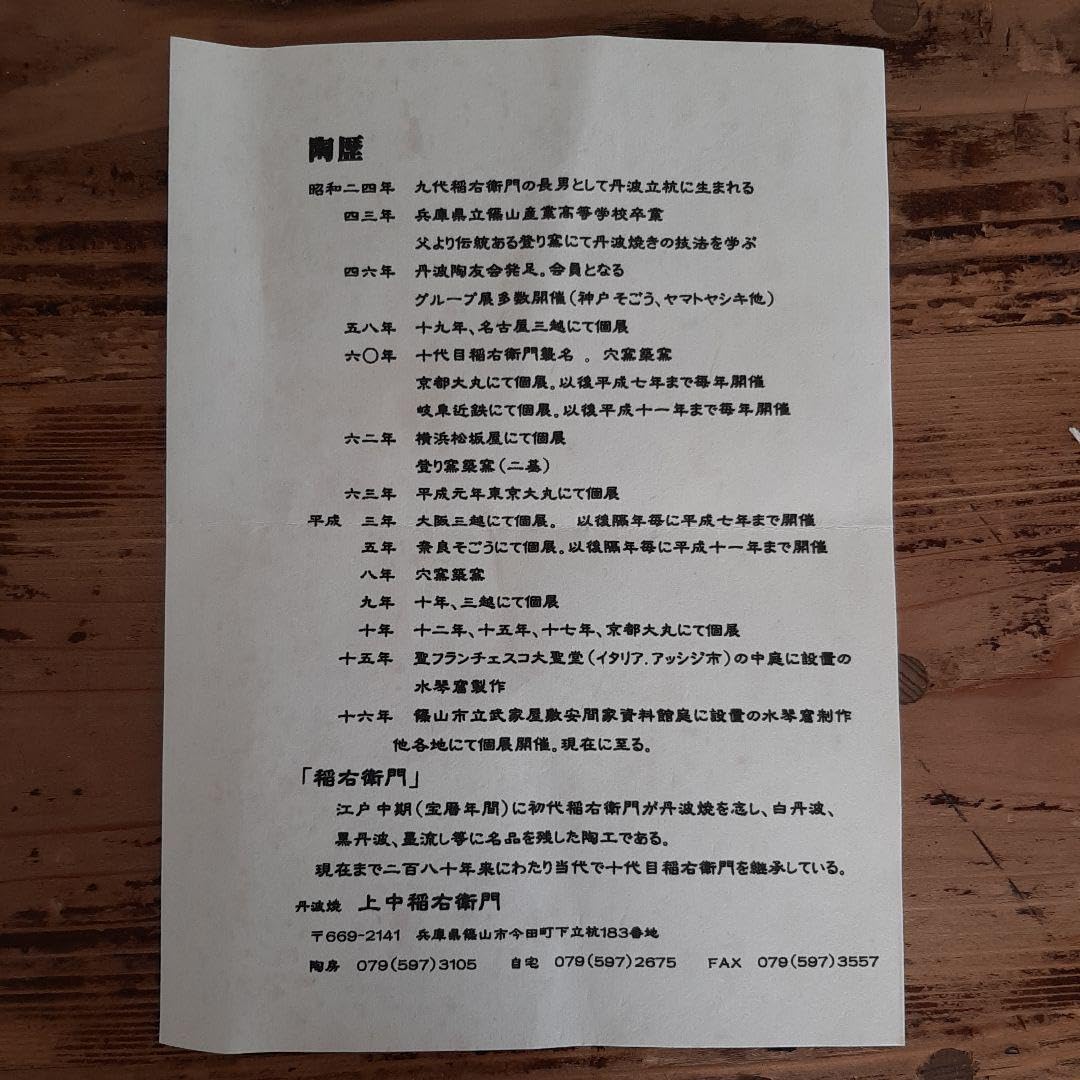 陶歴
昭和二四年 九代稲右衛門の長男として丹波立杭に生まれる
四三年 兵庫県立篠山産業高等学校卒業
父より伝統ある登り窯にて丹波焼きの技法を学ぶ
四六年 丹波陶友会発足。会員となる
グループ展多数開催(神戸そごう、ヤマトヤシキ他)
五八年 十九年、名古屋三越にて個展
六〇年 十代目稲右衛門襲名 。 穴窯築窯
京都大丸にて個展。以後平成七年まで毎年開催
岐阜近鉄にて個展。以後平成十一年まで毎年開催
六二年 横浜松坂屋にて個展
登り窯築窯(二基)
六三年 平成元年東京大丸にて個展
平成 三年 大阪三越にて個展。 以後隔年毎に平成七年まで開催
五年 奈良そごうにて個展。以後隔年毎に平成十一年まで開催
八年 穴窯築窯
九年 十年、三越にて個展
十年 十二年、十五年、十七年、京都大丸にて個展
十五年 聖フランチェスコ大聖堂(イタリア.アッシジ市)の中庭に設置の
水琴窟製作
十六年 篠山市立武家屋敷安間家資料館庭に設置の水琴窟制作
他各地にて個展開催。現在に至る。
「稲右衛門」
江戸中期(宝暦年間)に初代稲右衛門が丹波焼を志し、白丹波、
黒丹波、墨流し等に名品を残した陶工である。
現在まで二百八十年来にわたり当代で十代目稲右衛門を継承している。
丹波焼 上中稲右衛門
〒669-2141 兵庫県篠山市今田町下立杭183番地
陶房 079(597)3105 自宅 079(597)2675 FAX 079(597)3557